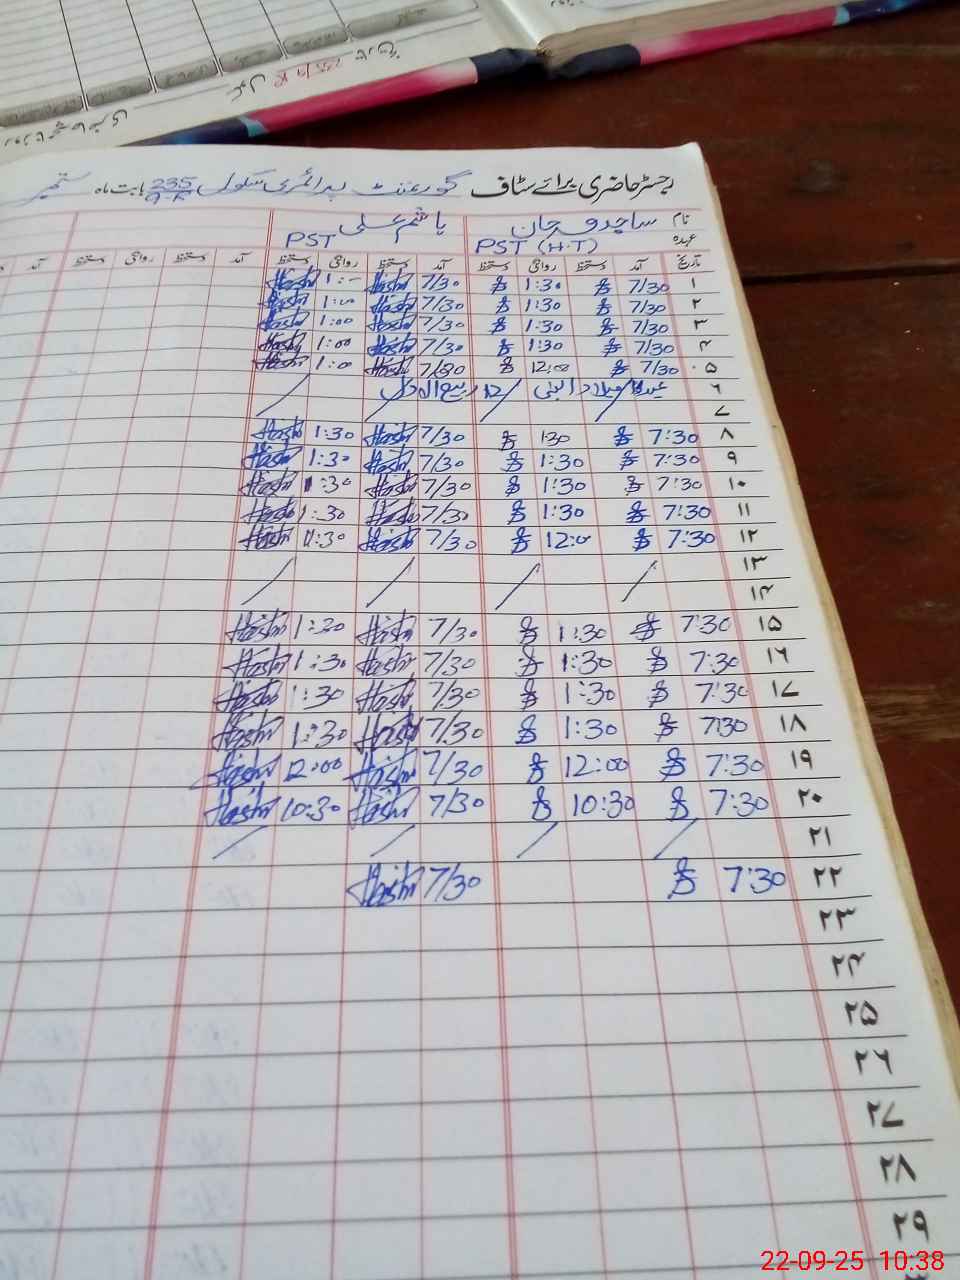 رجسٹر حاضری برائے سٹاف گورنمنٹ پرائمری سکول 235/9-R بابت ماہ ستمبر
نام ہاشم علی
عہدہ PST (H.T) PST
تاریخ آمد دستخط روانگی دستخط آمد دستخط روانگی دستخط آمد دستخط روانگی دستخط آمد
۱ 7/30 1:30 7/30 Hashi
۲ 7/30 1:30 7/30 Hashi 1:00 Hashi
۳ 7/30 1:30 7/30 Hashi 1:00 Hashi
۴ 7/30 1:30 7/30 Hashi 1:00 Hashi
۵ 7/30 12:00 7/30 Hashi 1:00 Hashi
۶ عید میلاد النبی 12 ربیع الاول
۷
۸ 7:30 130 7/30 Hashi 1:30 Hashi
۹ 7:30 1:30 7/30 Hashi 1:30 Hashi
۱۰ 7:30 1:30 7/30 Hashi 1:30 Hashi
۱۱ 7:30 1:30 7/30 Hashi 1:30 Hashi
۱۲ 7:30 12:00 7/30 Hashi Hashi
۱۳
۱۴
۱۵ 7:30 1:30 7/30 Hashi 1:30 Hashi
۱۶ 7:30 1:30 7/30 Hashi 1:30 Hashi
۱۷ 7:30 1:30 7/30 Hashi 1:30 Hashi
۱۸ 7:30 1:30 7/30 Hashi 1:30 Hashi
۱۹ 7:30 12:00 7/30 Hashi 12:00 Hashi
۲۰ 7:30 10:30 7/30 Hashi 10:30 Hashi
۲۱
۲۲ 7:30 7/30 Hashi
۲۳
۲۴
۲۵
۲۶
۲۷
۲۸
۲۹
22-09-25 10:38